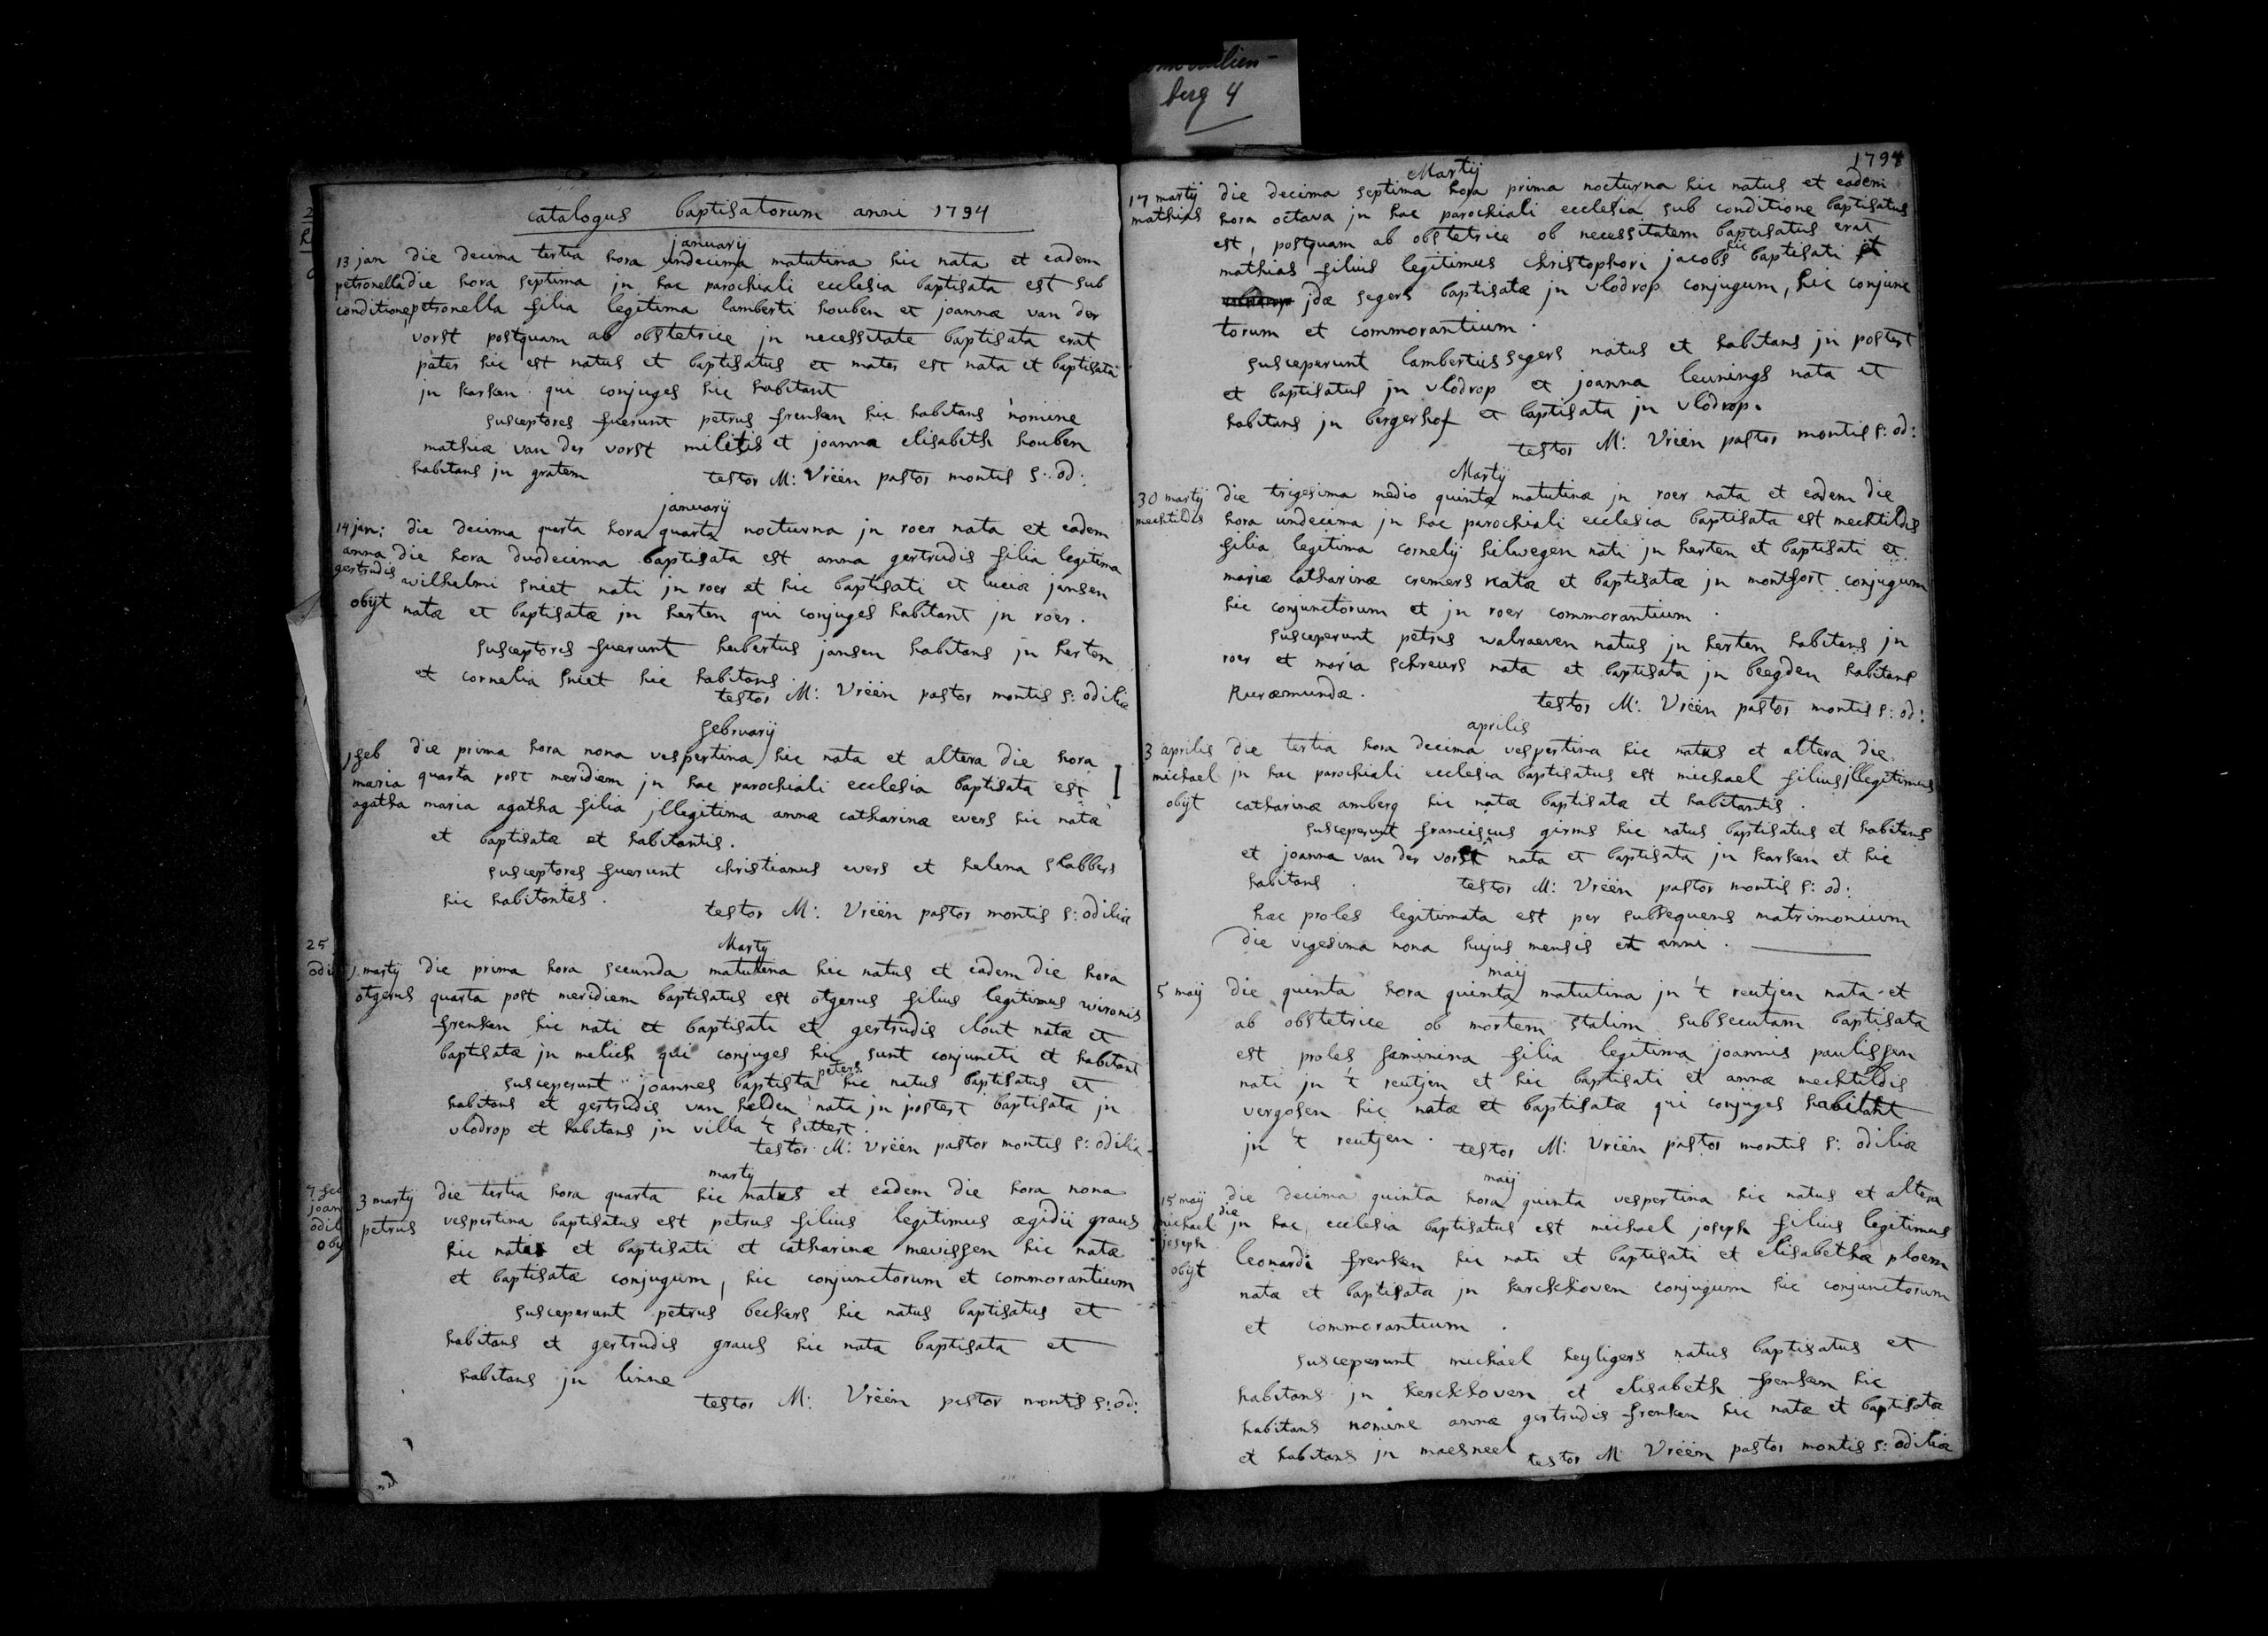 berg 4
catalogus baptisatorum anni 1794
januarij
13 jan die decima tertia hora undecima matutina hic nata et eadem
petronella die hora septima jn hac parochiali ecclesia baptisata est sub
conditione petronella filia legitima lamberti houben et joannæ van der
vorst postquam ab obstetrice jn necessitate baptisata erat
pater hic est natus et baptisatus et mater est nata et baptisata
jn karken qui conjuges hic habitant
susceptores fuerunt petrus frenken hic habitans nomine
mathiæ van der vorst militis et joanna elisabeth houben
habitans jn gratem testor M: Vrëën pastor montis s: od:
januarij
14 jan: die decima quarta hora quarta nocturna jn roer nata et eadem
anna die hora duodecima baptisata est anna gertrudis filia legitima
gertrudis wilhelmi sniet nati jn roer et hic baptisati et luciæ jansen
obijt natæ et baptisatæ jn herten qui conjuges habitant jn roer.
susceptores fuerunt hubertus jansen habitans jn herten
et cornelia sniet hic habitans.
testor M: Vrëën pastor montis s: odiliæ
februarij
1 feb die prima hora nona vespertina hic nata et altera die hora
maria quarta post meridiem jn hac parochiali ecclesia baptisata est
agatha maria agatha filia jllegitima annæ catharinæ evers hic natæ
et baptisatæ et habitantis.
susceptores fuerunt christianus evers et helena slabbers
hic habitantes.
testor M: Vrëën pastor montis s: odiliæ
25
Martij
1 martij die prima hora secunda matutina hic natus et eadem die hora
otgerus quarta post meridiem baptisatus est otgerus filius legitimus wironis
frenken hic nati et baptisati et gertrudis clout natæ et
baptisatæ jn melich qui conjuges hic sunt conjuncti et habitant
peters
susceperunt joannes baptista hic natus baptisatus et
habitans et gertrudis van helden nata jn postert baptisata jn
vlodrop et habitans jn villa 't sittert.
testor M: Vrëën pastor montis s: odiliæ
martij
3 martij die tertia hora quarta hic natus et eadem die hora nona
petrus vespertina baptisatus est petrus filius legitimus ægidii graus
hic nati et baptisati et catharinæ mevissen hic natæ
et baptisatæ conjugum, hic conjunctorum et commorantium
susceperunt petrus beckers hic natus baptisatus et
habitans et gertrudis graus hic nata baptisata et
habitans jn linne
testor M: Vrëën pastor montis s: od:
1794
Martij
17 martij die decima septima hora prima nocturna hic natus et eadem
mathias hora octava jn hac parochiali ecclesia sub conditione baptisatus
est, postquam ab obstetrice ob necessitatem baptisatus erat
mathias filius legitimus christophori jacobs hic baptisati et
jdæ segers baptisatæ jn vlodrop conjugum, hic conjunc
torum et commorantium.
susceperunt lambertus segers natus et habitans jn postert
et baptisatus jn vlodrop et joanna leunings nata et
habitans jn bergerhof et baptisata jn vlodrop.
testor M: Vrëën pastor montis s: od:
Martij
30 martij die trigesima medio quinta matutina jn roer nata et eadem die
mechtildis hora undecima jn hac parochiali ecclesia baptisata est mechtildis
filia legitima cornelij hilwegen nati jn herten et baptisati et
mariæ catharinæ cremers natæ et baptisatæ jn montfort conjugum
hic conjunctorum et jn roer commorantium.
susceperunt petrus walraeven natus jn herten habitans jn
roer et maria schreurs nata et baptisata jn beegden habitans
Ruræmundæ. testor M: Vrëën pastor montis s: od:
aprilis
3 aprilis die tertia hora decima vespertina hic natus et altera die
michael jn hac parochiali ecclesia baptisatus est michael filius jllegitimus
obijt catharinæ amberg hic natæ baptisatæ et habitantis.
susceperunt franciscus girms hic natus baptisatus et habitans
et joanna van der vorst nata et baptisata jn karken et hic
habitans. testor M: Vrëën pastor montis s: od:
hac proles legitimata est per subsequens matrimonium
die vigesima nona hujus mensis et anni.
maij
5 maij die quinta hora quinta matutina jn 't reutjen nata et
ab obstetrice ob mortem statim subsecutam baptisata
est proles fæminina filia legitima joannis paulissen
nati jn 't reutjen et hic baptisati et annæ mechtildis
vergosen hic natæ et baptisatæ qui conjuges habitant
jn 't reutjen. testor M: Vrëën pastor montis s: odiliæ
maij
15 maij die decima quinta hora quinta vespertina hic natus et altera
die
michael jn hac ecclesia baptisatus est michael joseph filius legitimus
joseph
obijt leonardi frenken hic nati et baptisati et elisabethæ ploem
nata et baptisata jn kerckhoven conjugum hic conjunctorum
et commorantium.
susceperunt michael heyligers natus baptisatus et
habitans jn kerckhoven et elisabeth frenken hic
habitans nomine annæ gertrudis frenken hic natæ et baptisatæ
et habitans jn maesneel testor M Vrëën pastor montis s: odiliæ